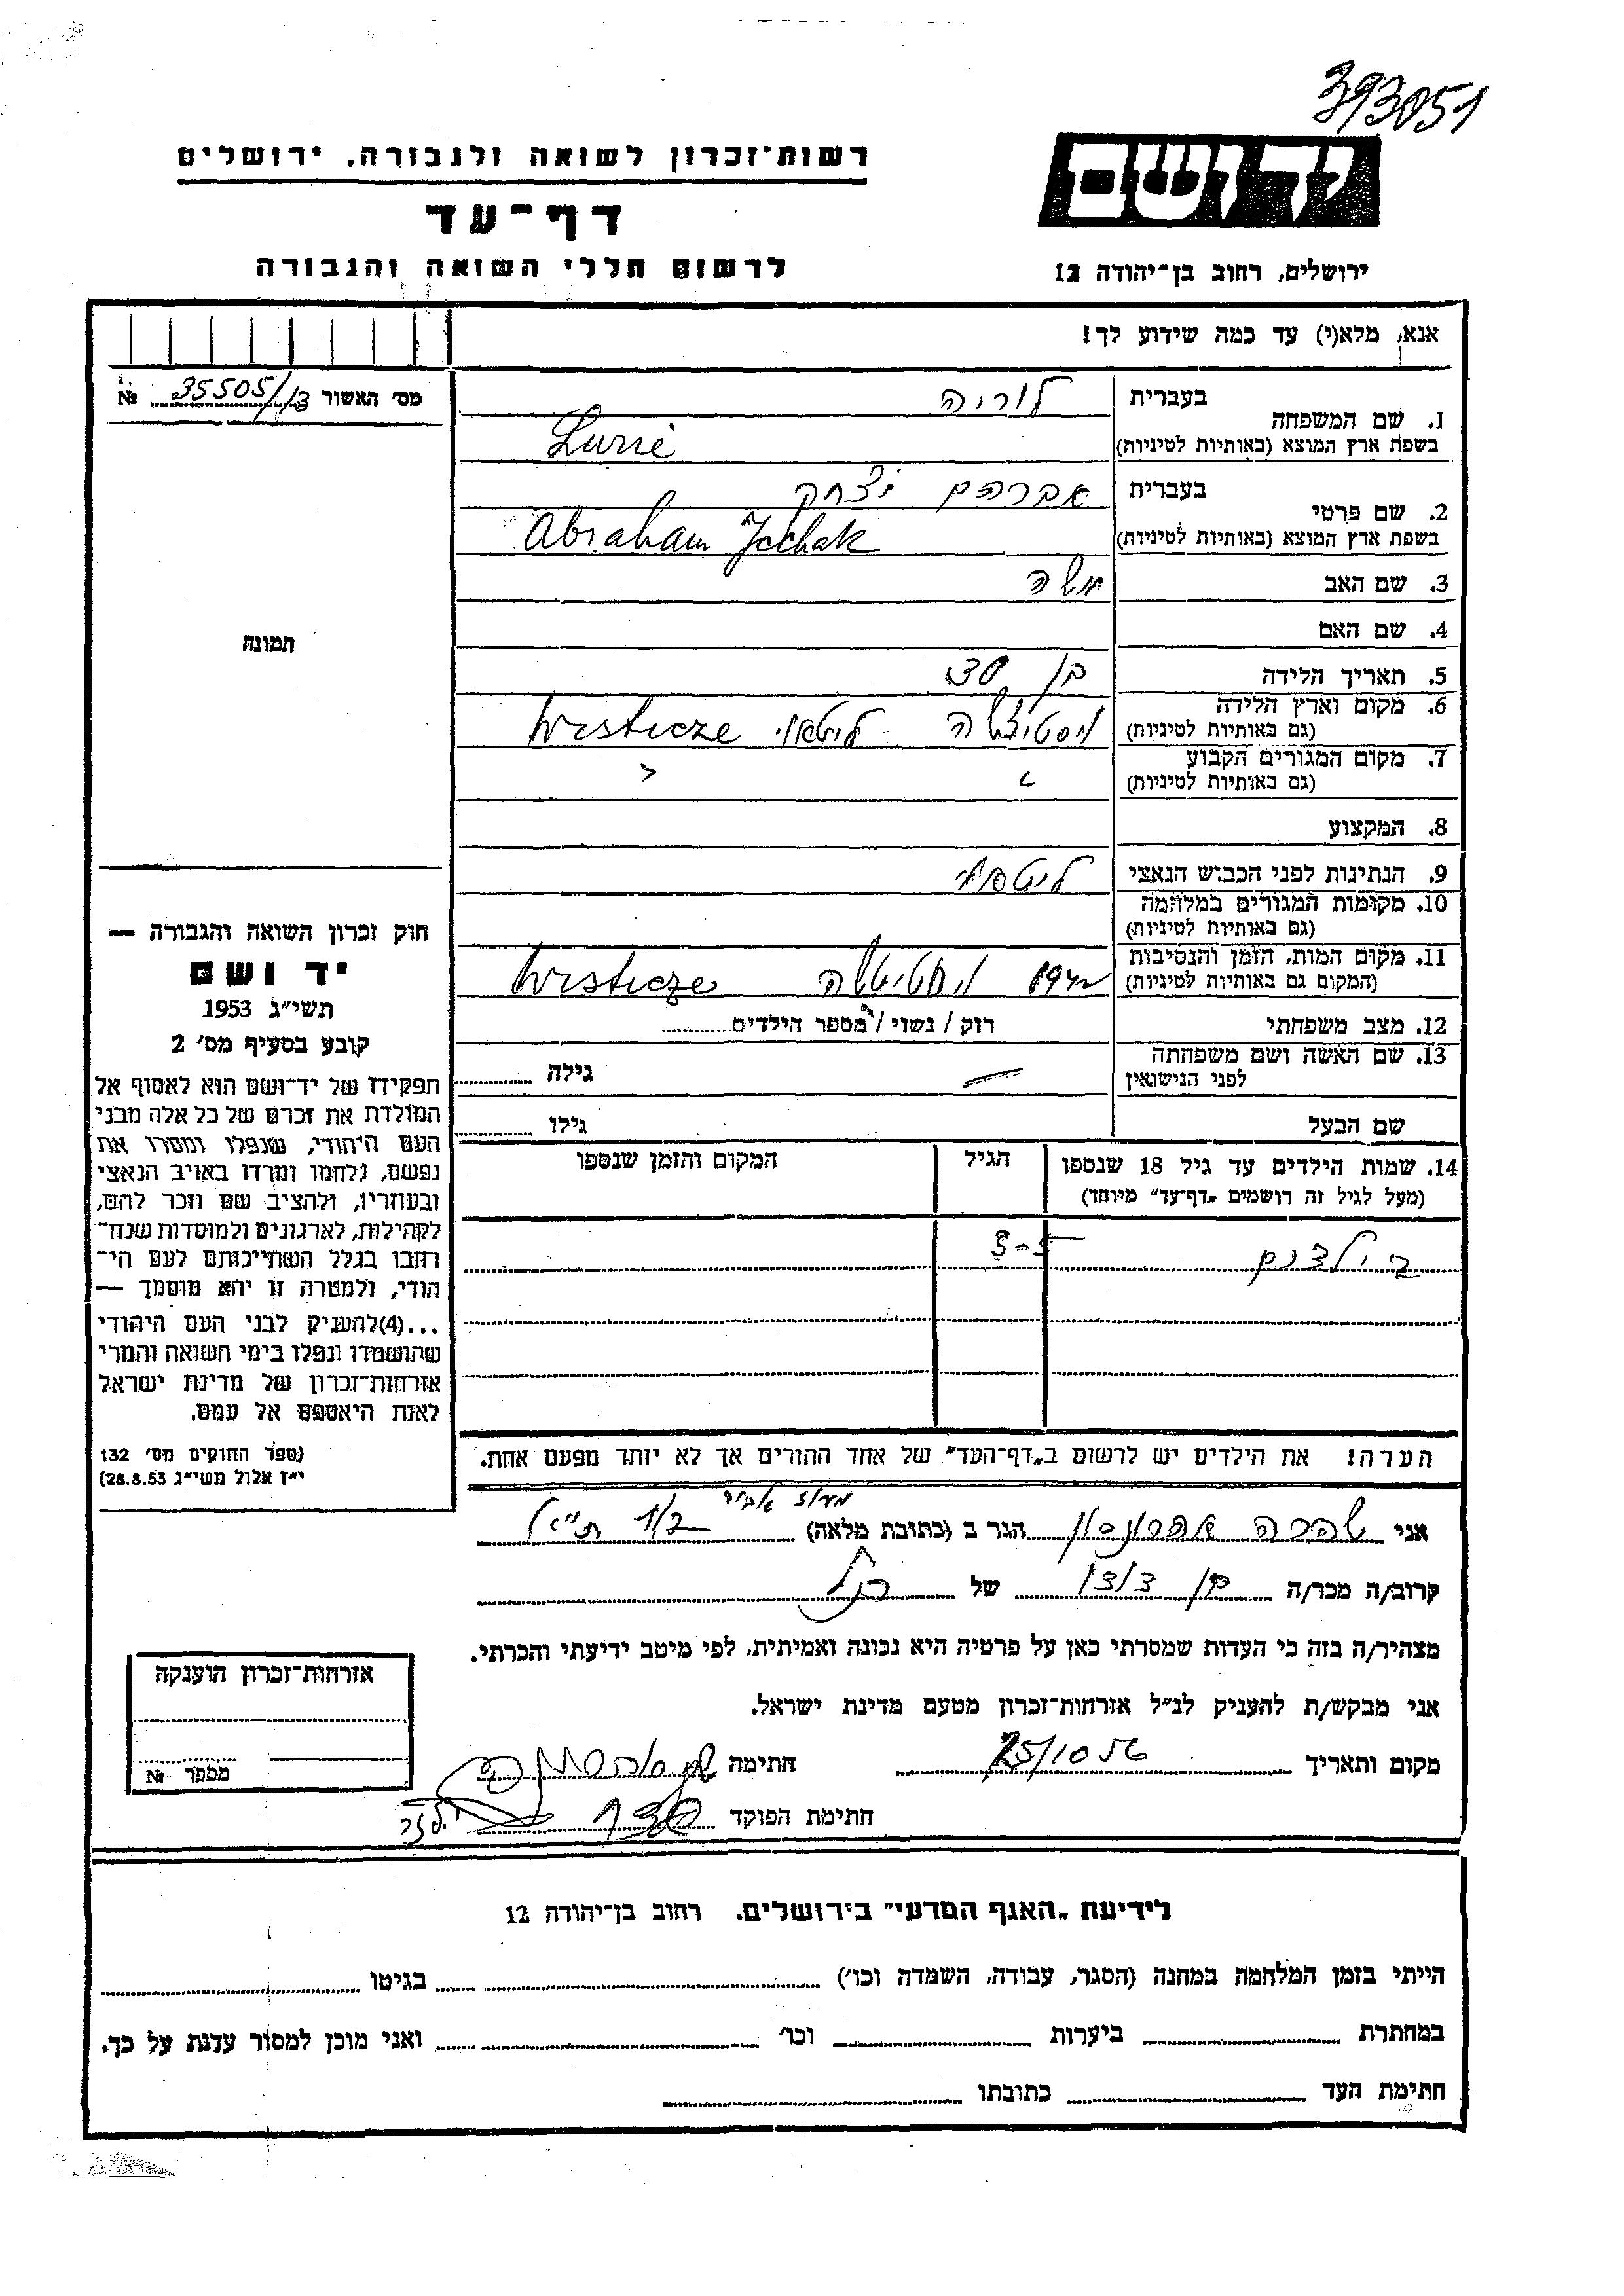 393051
רשות־זכרון לשואה ולגבורה, ירושלים
יד ושם
דף־עד
לרשום חללי השואה והגבורה
ירושלים, רחוב בן־יהודה 12
אנא, מלא(י) עד כמה שידוע לך!
מס' האשור 35505/13 №
1. שם המשפחה
בעברית לוריה
בשפת ארץ המוצא (באותיות לטיניות) Lurie
2. שם פרטי
בעברית אברהם יצחק
בשפת ארץ המוצא (באותיות לטיניות) Abraham Jcchak
3. שם האב משה
4. שם האם
תמונה
5. תאריך הלידה בן 30
6. מקום וארץ הלידה
(גם באותיות לטיניות) ליטא Wisticze
7. מקום המגורים הקבוע
(גם באותיות לטיניות)
8. המקצוע
9. הנתינות לפני הכבוש הנאצי ליטאי
10. מקומות המגורים במלחמה
(גם באותיות לטיניות)
11. מקום המות, הזמן והנסיבות
(המקום גם באותיות לטיניות) Wisticze
12. מצב משפחתי רוק / נשוי / מספר הילדים
13. שם האשה ושם משפחתה
לפני הנישואין גילה
שם הבעל גילו
14. שמות הילדים עד גיל 18 שנספו הגיל המקום והזמן שנספו
(מעל לגיל זה רושמים „דף־עד" מיוחד)
2 ילדים 3-5
הערה! את הילדים יש לרשום ב„דף־העד" של אחד ההורים אך לא יותר מפעם אחת.
חוק זכרון השואה והגבורה —
יד ושם
תשי"ג 1953
קובע בסעיף מס' 2
תפקידו של יד־ושם הוא לאסוף אל
המולדת את זכרם של כל אלה מבני
העם היהודי, שנפלו ומסרו את
נפשם, נלחמו ומרדו באויב הנאצי
ובעוזריו, ולהציב שם וזכר להם,
לקהילות, לארגונים ולמוסדות שנח־
רחבו בגלל השתייכותם לעם הי־
הודי, ולמטרה זו יהא מוסמך —
...(4)להעניק לבני העם היהודי
שהושמדו ונפלו בימי השואה והמרי
אזרחות־זכרון של מדינת ישראל
לאות היאספם אל עמם.
(ספר החוקים מס' 132
י"ז אלול תשי"ג 28.8.53)
אני שפרה אהרונסון הגר ב (כתובת מלאה)
קרוב/ה מכר/ה בן דודו של הנ"ל
מצהיר/ה בזה כי העדות שמסרתי כאן על פרטיה היא נכונה ואמיתית, לפי מיטב ידיעתי והכרתי.
אני מבקש/ת להעניק לנ"ל אזרחות־זכרון מטעם מדינת ישראל.
מקום ותאריך 25/10 56 חתימה
חתימת הפוקד
אזרחות־זכרון הוענקה
מספר №
לידיעת „האגף המדעי" בירושלים. רחוב בן־יהודה 12
הייתי בזמן המלחמה במחנה (הסגר, עבודה, השמדה וכו') בגיטו
במחתרת ביערות וכו' ואני מוכן למסור עדות על כך.
חתימת העד כתובתו